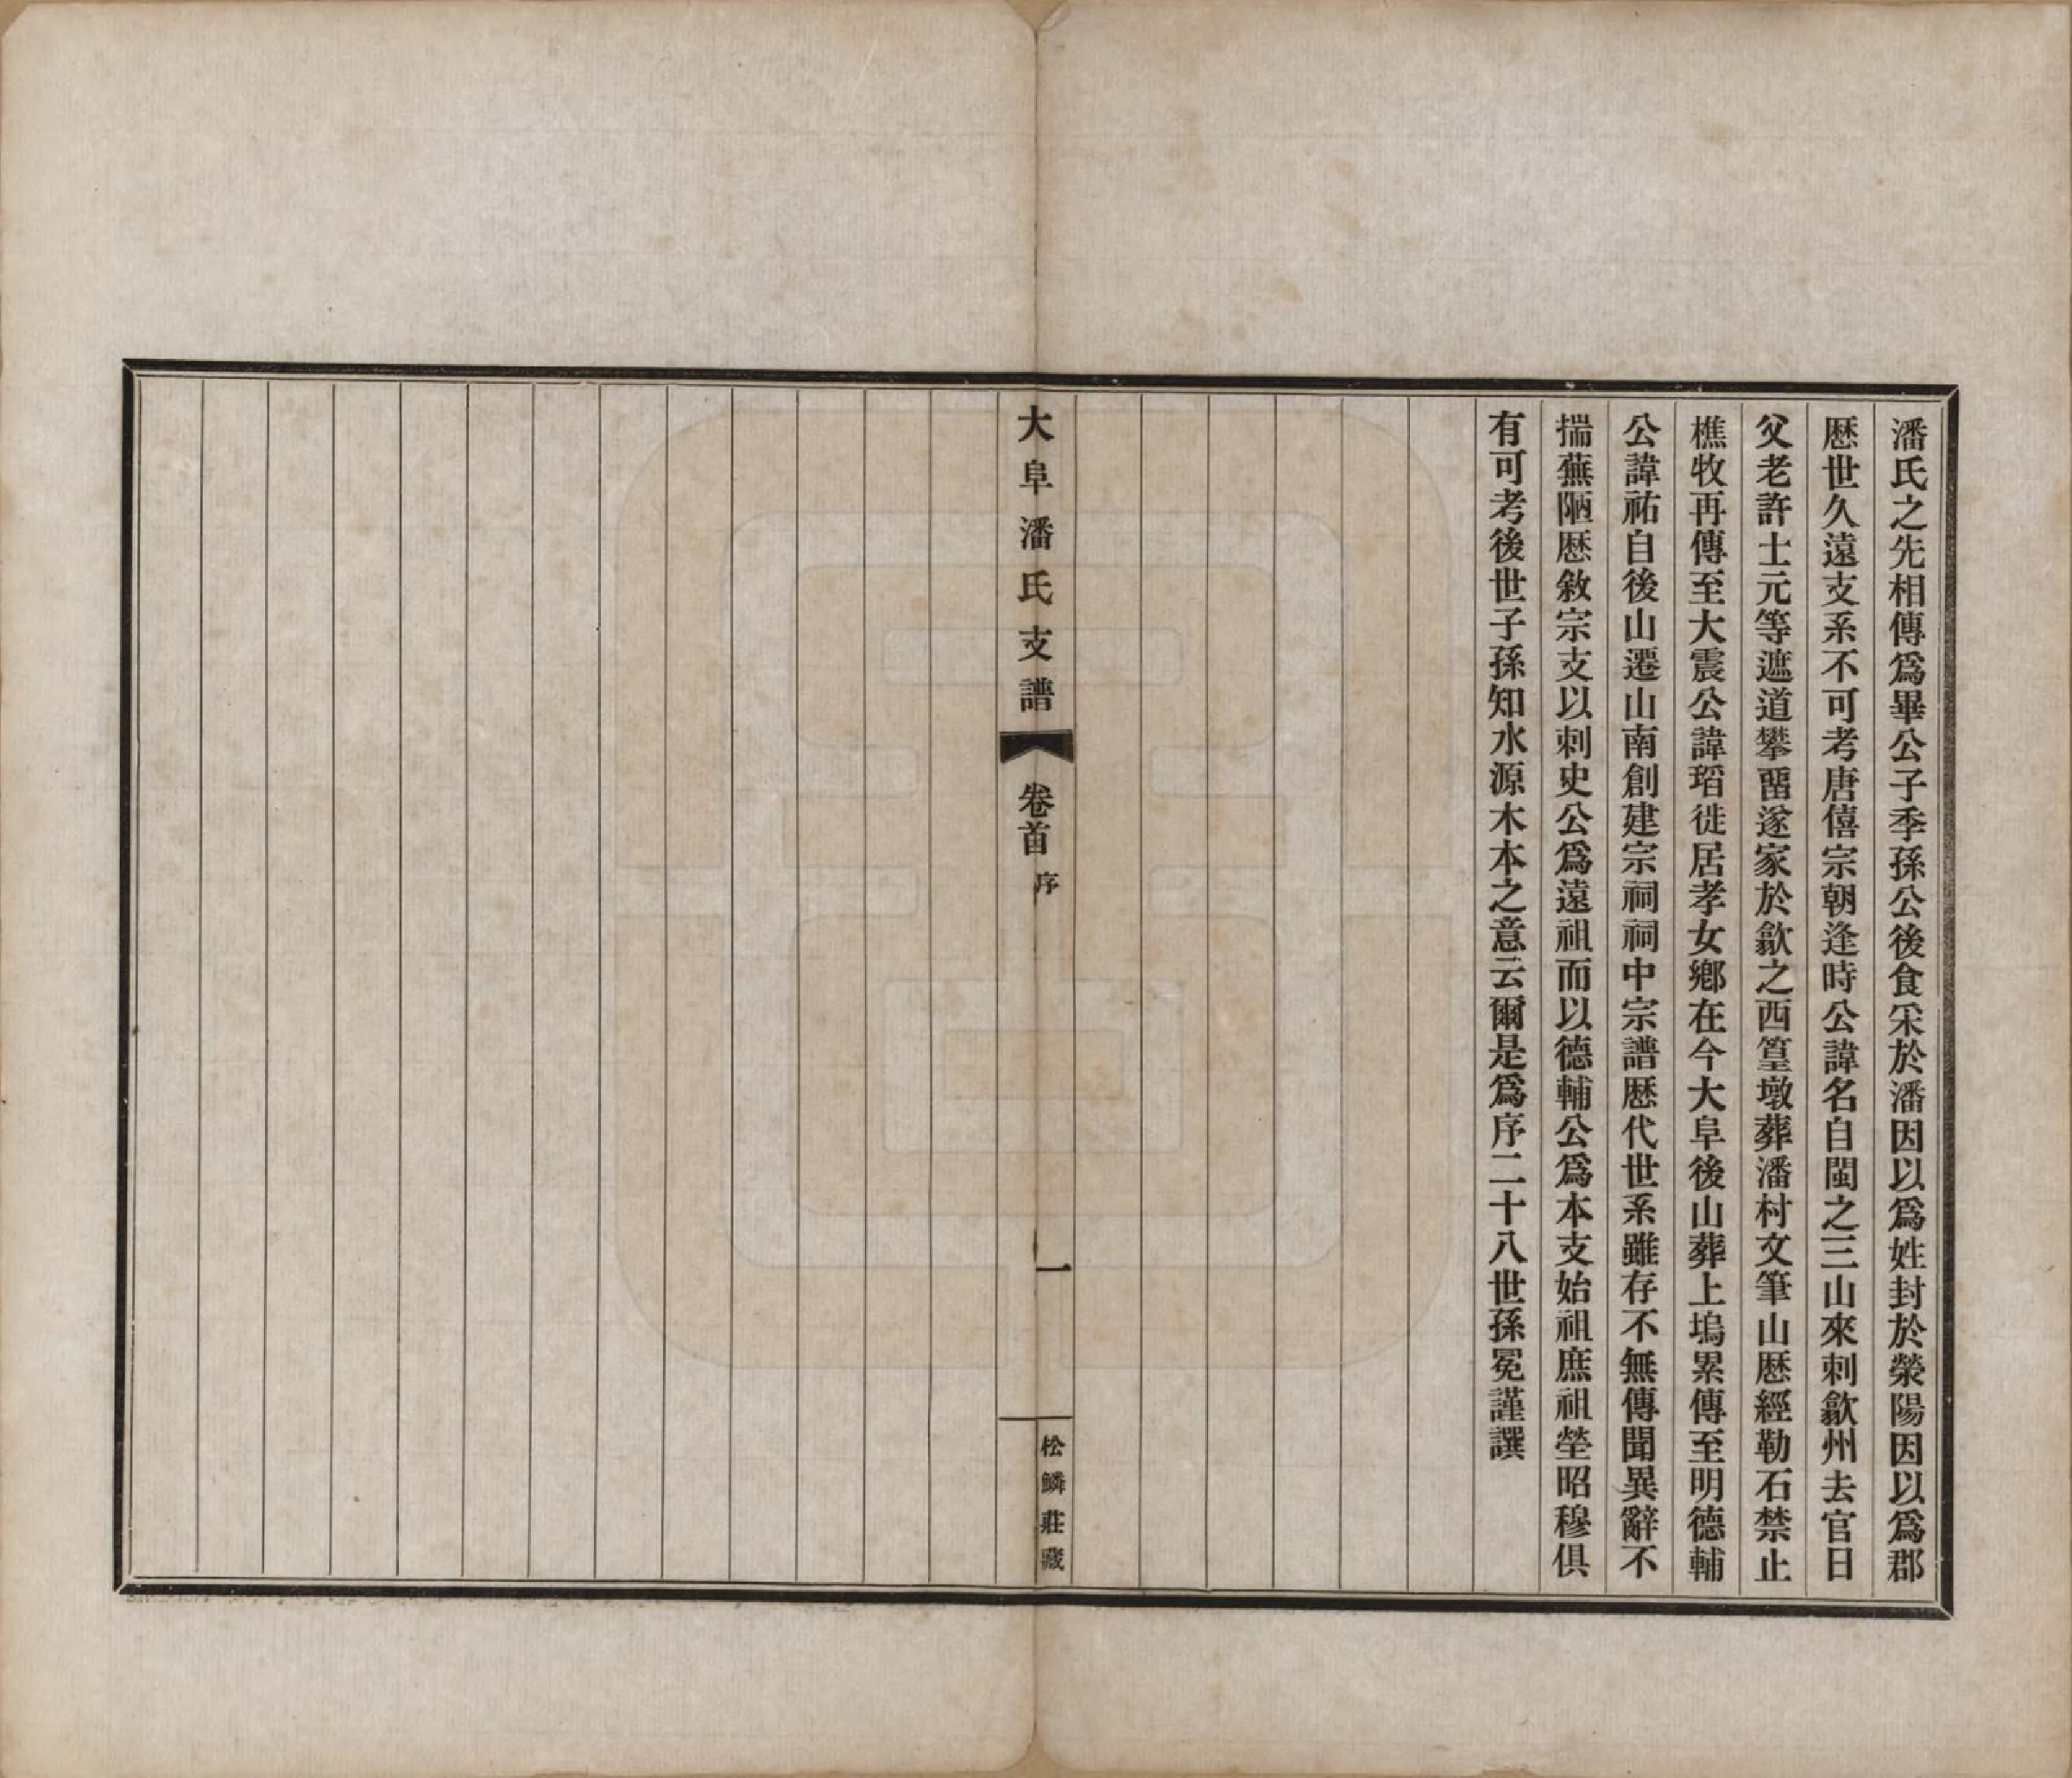 潘氏之先相傳爲畢公子季孫公後食采於潘因以爲姓封於滎陽因以爲郡
歴世久遠支系不可考唐僖宗朝逢時公諱名自閩之三山來刺歙州去官日
父老許士元等遮道攀畱遂家於歙之西篁墩葬潘村文筆山歴經勒石禁止
樵牧再傳至大震公諱瑫徙居孝女鄉在今大阜後山葬上塢累傳至明德輔
公諱祐自後山遷山南創建宗祠祠中宗譜歴代世系雖存不無傳聞異辭不
揣蕪陋歴敘宗支以刺史公爲遠祖而以德輔公爲本支始祖庶祖塋昭穆俱
有可考後世子孫知水源木本之意云爾是爲序二十八世孫冕謹譔
大阜潘氏支譜 卷首 序 一 松鱗莊藏